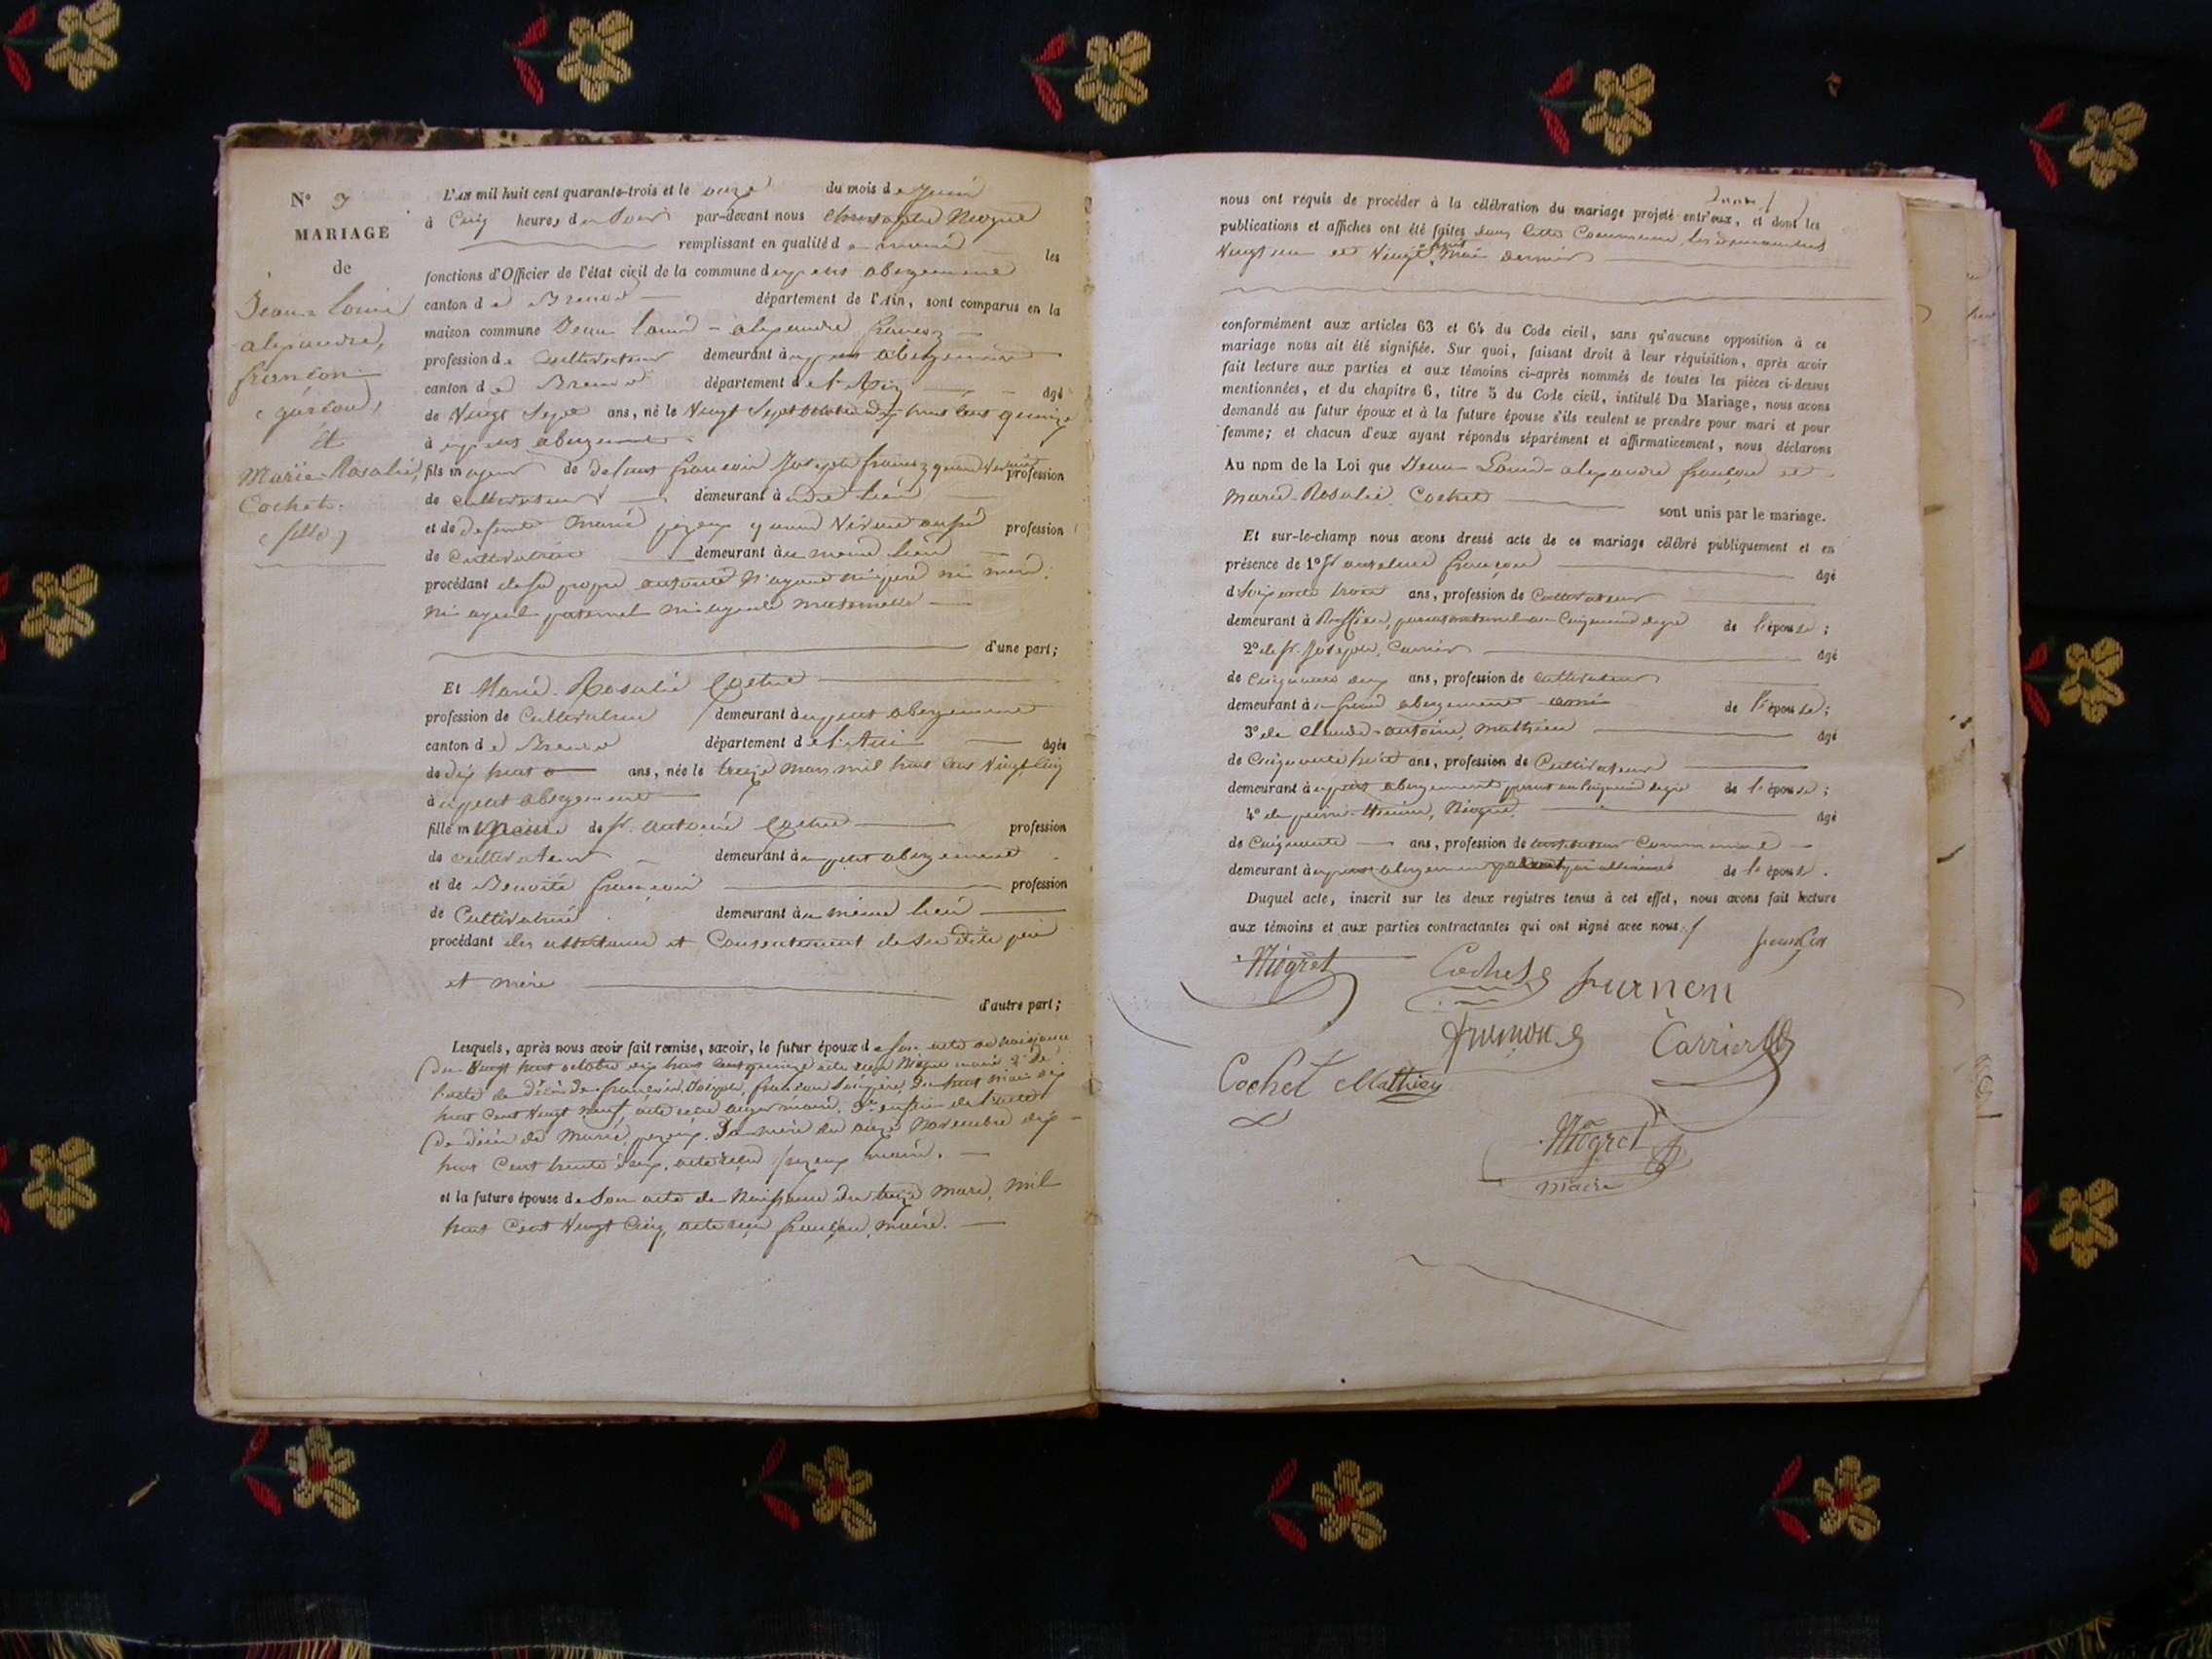 N° 3
MARIAGE
de
Jean-Louis
alexandre,
françon
(garçon)
et
Marie-Rosalie,
Cochet.
(fille)
L'an mil huit cent quarante-trois et le onze du mois de Juin
à Cinq heures du Soir par-devant nous Christophe Niogret
remplissant en qualité de maire les
fonctions d'Officier de l'état civil de la commune du petit abergement
canton de Brenod département de l'Ain, sont comparus en la
maison commune Jean Louis-alexandre françon
profession de Cultivateur demeurant au petit abergement
canton de Brenod département de l'Ain âgé
de Vingt Sept ans, né le Vingt Sept octobre dix huit cent quinze
à au petit abergement
fils majeur de defunt françois Joseph françon quand vivait profession
de cultivateur demeurant à du dit lieu
et de defunte Marie quand Vivait aussi profession
de Cultivatrice demeurant au meme lieu
procédant de sa propre autorité n'ayant ni père ni mère,
ni ayeul paternel ni ayeule maternelle
d'une part;
Et Marie-Rosalie Cochet
profession de Cultivatrice demeurant au petit abergement
canton de Brenod département de l'Ain âgée
de dix huit ans, née le treize Mars mil huit cent Vingt Cinq
à au petit abergement
fille mineure de Sr. Antoine Cochet profession
de cultivateur demeurant au petit abergement
et de Benoite françon profession
de Cultivatrice demeurant au même lieu
procédant de l'assistance et Consentement de ses dits père
et mère
d'autre part;
Lesquels, après nous avoir fait remise, savoir, le futur époux de son acte de naissance
du Vingt huit octobre dix huit cent quinze acte reçu Niogret maire 2° de
l'acte de décès de françois Joseph, françon Son père, du huit mai dix
huit Cent Vingt neuf, acte reçu maire. 3° enfin de l'acte
de décès de Marie Sa mère du onze Novembre dix
huit Cent trente deux, acte reçu maire.
et la future épouse de Son acte de Naissance du treize Mars, mil
huit Cent Vingt Cinq, acte reçu françon, maire.
nous ont requis de procéder à la célébration du mariage projeté entr'eux, et dont les
publications et affiches ont été faites dans cette Commune, les dimanches
Vingt un et Vingt huit Mai dernier
conformément aux articles 63 et 64 du Code civil, sans qu'aucune opposition à ce
mariage nous ait été signifiée. Sur quoi, faisant droit à leur réquisition, après avoir
fait lecture aux parties et aux témoins ci-après nommés de toutes les pièces ci-dessus
mentionnées, et du chapitre 6, titre 5 du Code civil, intitulé Du Mariage, nous avons
demandé au futur époux et à la future épouse s'ils veulent se prendre pour mari et pour
femme; et chacun d'eux ayant répondu séparément et affirmativement, nous déclarons
Au nom de la Loi que Jean-Louis-alexandre françon et
Marie-Rosalie Cochet sont unis par le mariage.
Et sur-le-champ nous avons dressé acte de ce mariage célébré publiquement et en
présence de 1° Sr anselme françon âgé
de Soixante trois ans, profession de Cultivateur
demeurant à Ruffieu, parent maternel au Cinquieme degré de l'épouse;
2° de Sr. Joseph Carrier âgé
de Cinquante deux ans, profession de cultivateur
demeurant au grand abergement ami de l'épouse;
3° de Claude-antoine, Mathieu âgé
de Cinquante huit ans, profession de Cultivateur
demeurant au petit abergement parent au Cinquieme degré de l'épouse;
4° de pierre Niogret âgé
de Cinquante ans, profession de instituteur Communal
demeurant au petit abergement de l'épouse.
Duquel acte, inscrit sur les deux registres tenus à cet effet, nous avons fait lecture
aux témoins et aux parties contractantes qui ont signé avec nous.
Niogret Cochet françon
françon Carrier
Cochet Mathieu
Niogret
maire